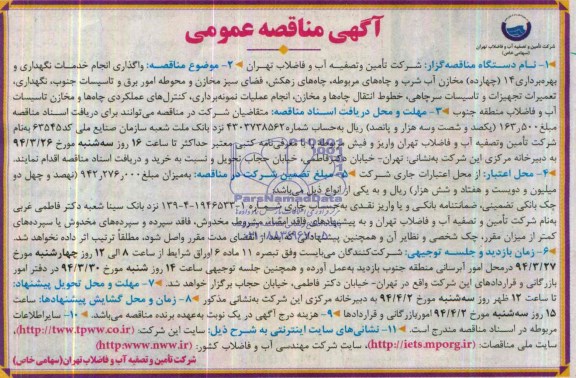 آگهی مناقصه عمومی
شرکت تأمین و تصفیه آب و فاضلاب تهران
(سهامی خاص)
۱- نـام دستگاه مناقصه‌گزار: شرکت تأمین وتصفیه آب و فاضلاب تهران ۲- موضوع مناقصه: واگذاری انجام خدمات نگهداری و
بهره‌برداری۱۴ (چهارده) مخازن آب شرب و چاه‌های مربوطه، چاه‌های زهکش، فضای سبز مخازن و محوطه امور برق و تاسیسات جنوب، نگهداری،
تعمیرات تجهیزات و تاسیسات سرچاهی، خطوط انتقال چاه‌ها و مخازن، انجام عملیات نمونه‌برداری، کنترل‌های عملکردی چاه‌ها و مخازن تاسیسات
آب و فاضلاب منطقه جنوب ۳- مهلت و محل دریافت اسناد مناقصه: متقاضیان شرکت در مناقصه می‌توانند برای دریافت اسناد مناقصه
مبلغ۱۶۳٫۵۰۰ (یکصد و شصت وسه هزار و پانصد) ریال به‌حساب شماره۴۳۰۳۷۳۸۵۶۲ نزد بانک ملت شعبه سازمان صنایع ملی کد۶۳۵۴۵ به‌نام
شرکت تأمین وتصفیه آب وفاضلاب تهران واریز و فیش معرفی‌نامه کتبی معتبر حداکثر تا ساعت ۱۶ روز سه‌شنبه مورخ ۹۴/۳/۲۶
به دبیرخانه مرکزی این شرکت به‌نشانی: تهران- خیابان دکترفاطمی، خیابان حجاب تحویل و نسبت به خرید و دریافت اسناد مناقصه اقدام نمایند.
۴- محل اعتبار: از محل اعتبارات جاری شـرکت ۵- مبلغ تضمین شرکت در مناقصه: به‌میزان مبلغ۹۴۲٫۲۷۶٫۰۰۰ (نهصد و چهل دو
میلیون و دویست و هفتاد و شش هزار) ریال و به یکی از انواع ذیل می‌باشد:
چک بانکی تضمینی، ضمانتنامه بانکی و یا واریز نقدی به‌حساب جاری شماره ۱-۱۹۴۶۵۳۳-۴-۱۳۹ نزد بانک سینا شعبه دکتر فاطمی غربی
به‌نام شرکت تأمین و تصفیه آب و فاضلاب تهران و به پیشنهادهای فاقد امضاء، مشروط، مخدوش، فاقد سپرده و سپرده‌های مخدوش یا سپرده‌های
کمتر از میزان مقرر، چک شخصی و نظایر آن و همچنین پیشنهادهایی که بعد از انقضای مدت مقرر واصل شود، مطلقاً ترتیب اثر داده نخواهد شد.
۶- زمان بازدید و جلسه توجیهی: شرکت‌کنندگان می‌بایست وفق تبصره ۱۱ ماده ۶ اوراق شرایط از ساعت ۸ الی ۱۲ روز چهارشنبه مورخ
۹۴/۳/۲۷ درمحل امور آبرسانی منطقه جنوب بازدید به‌عمل آورده و همچنین جلسه توجیهی ساعت ۱۴ روز شنبه مورخ ۹۴/۳/۳۰ در دفتر امور
بازرگانی و قراردادهای این شرکت واقع در تهران- خیابان دکتر فاطمی، خیابان حجاب برگزار خواهد شد. ۷- مهلت و محل تحویل پیشنهادها:
تا ساعت ۱۲ ظهر روز سه‌شنبه مورخ ۹۴/۴/۲ به دبیرخانه مرکزی این شرکت به‌نشانی مذکور ۸- زمان و محل گشایش پیشنهادها: ساعت
۱۵ روز سه‌شنبه مورخ ۹۴/۴/۲ اموربازرگانی و قراردادها ۹- هزینه درج آگهی در یک نوبت به‌عهده برنده مناقصه می‌باشد. ۱۰- سایراطلاعات
مربوطه در اسناد مناقصه مندرج است. ۱۱- نشانی‌های سایت اینترنتی به شـرح ذیل: سایت این شرکت: (http://tww.tpww.co.ir)،
سایت ملی مناقصات: (http://iets.mporg.ir)، سایت شرکت مهندسی آب و فاضلاب کشور: (http:www.nww.ir)
شرکت تأمین و تصفیه آب و فاضلاب تهران(سهامی خاص)
ParsNamadData